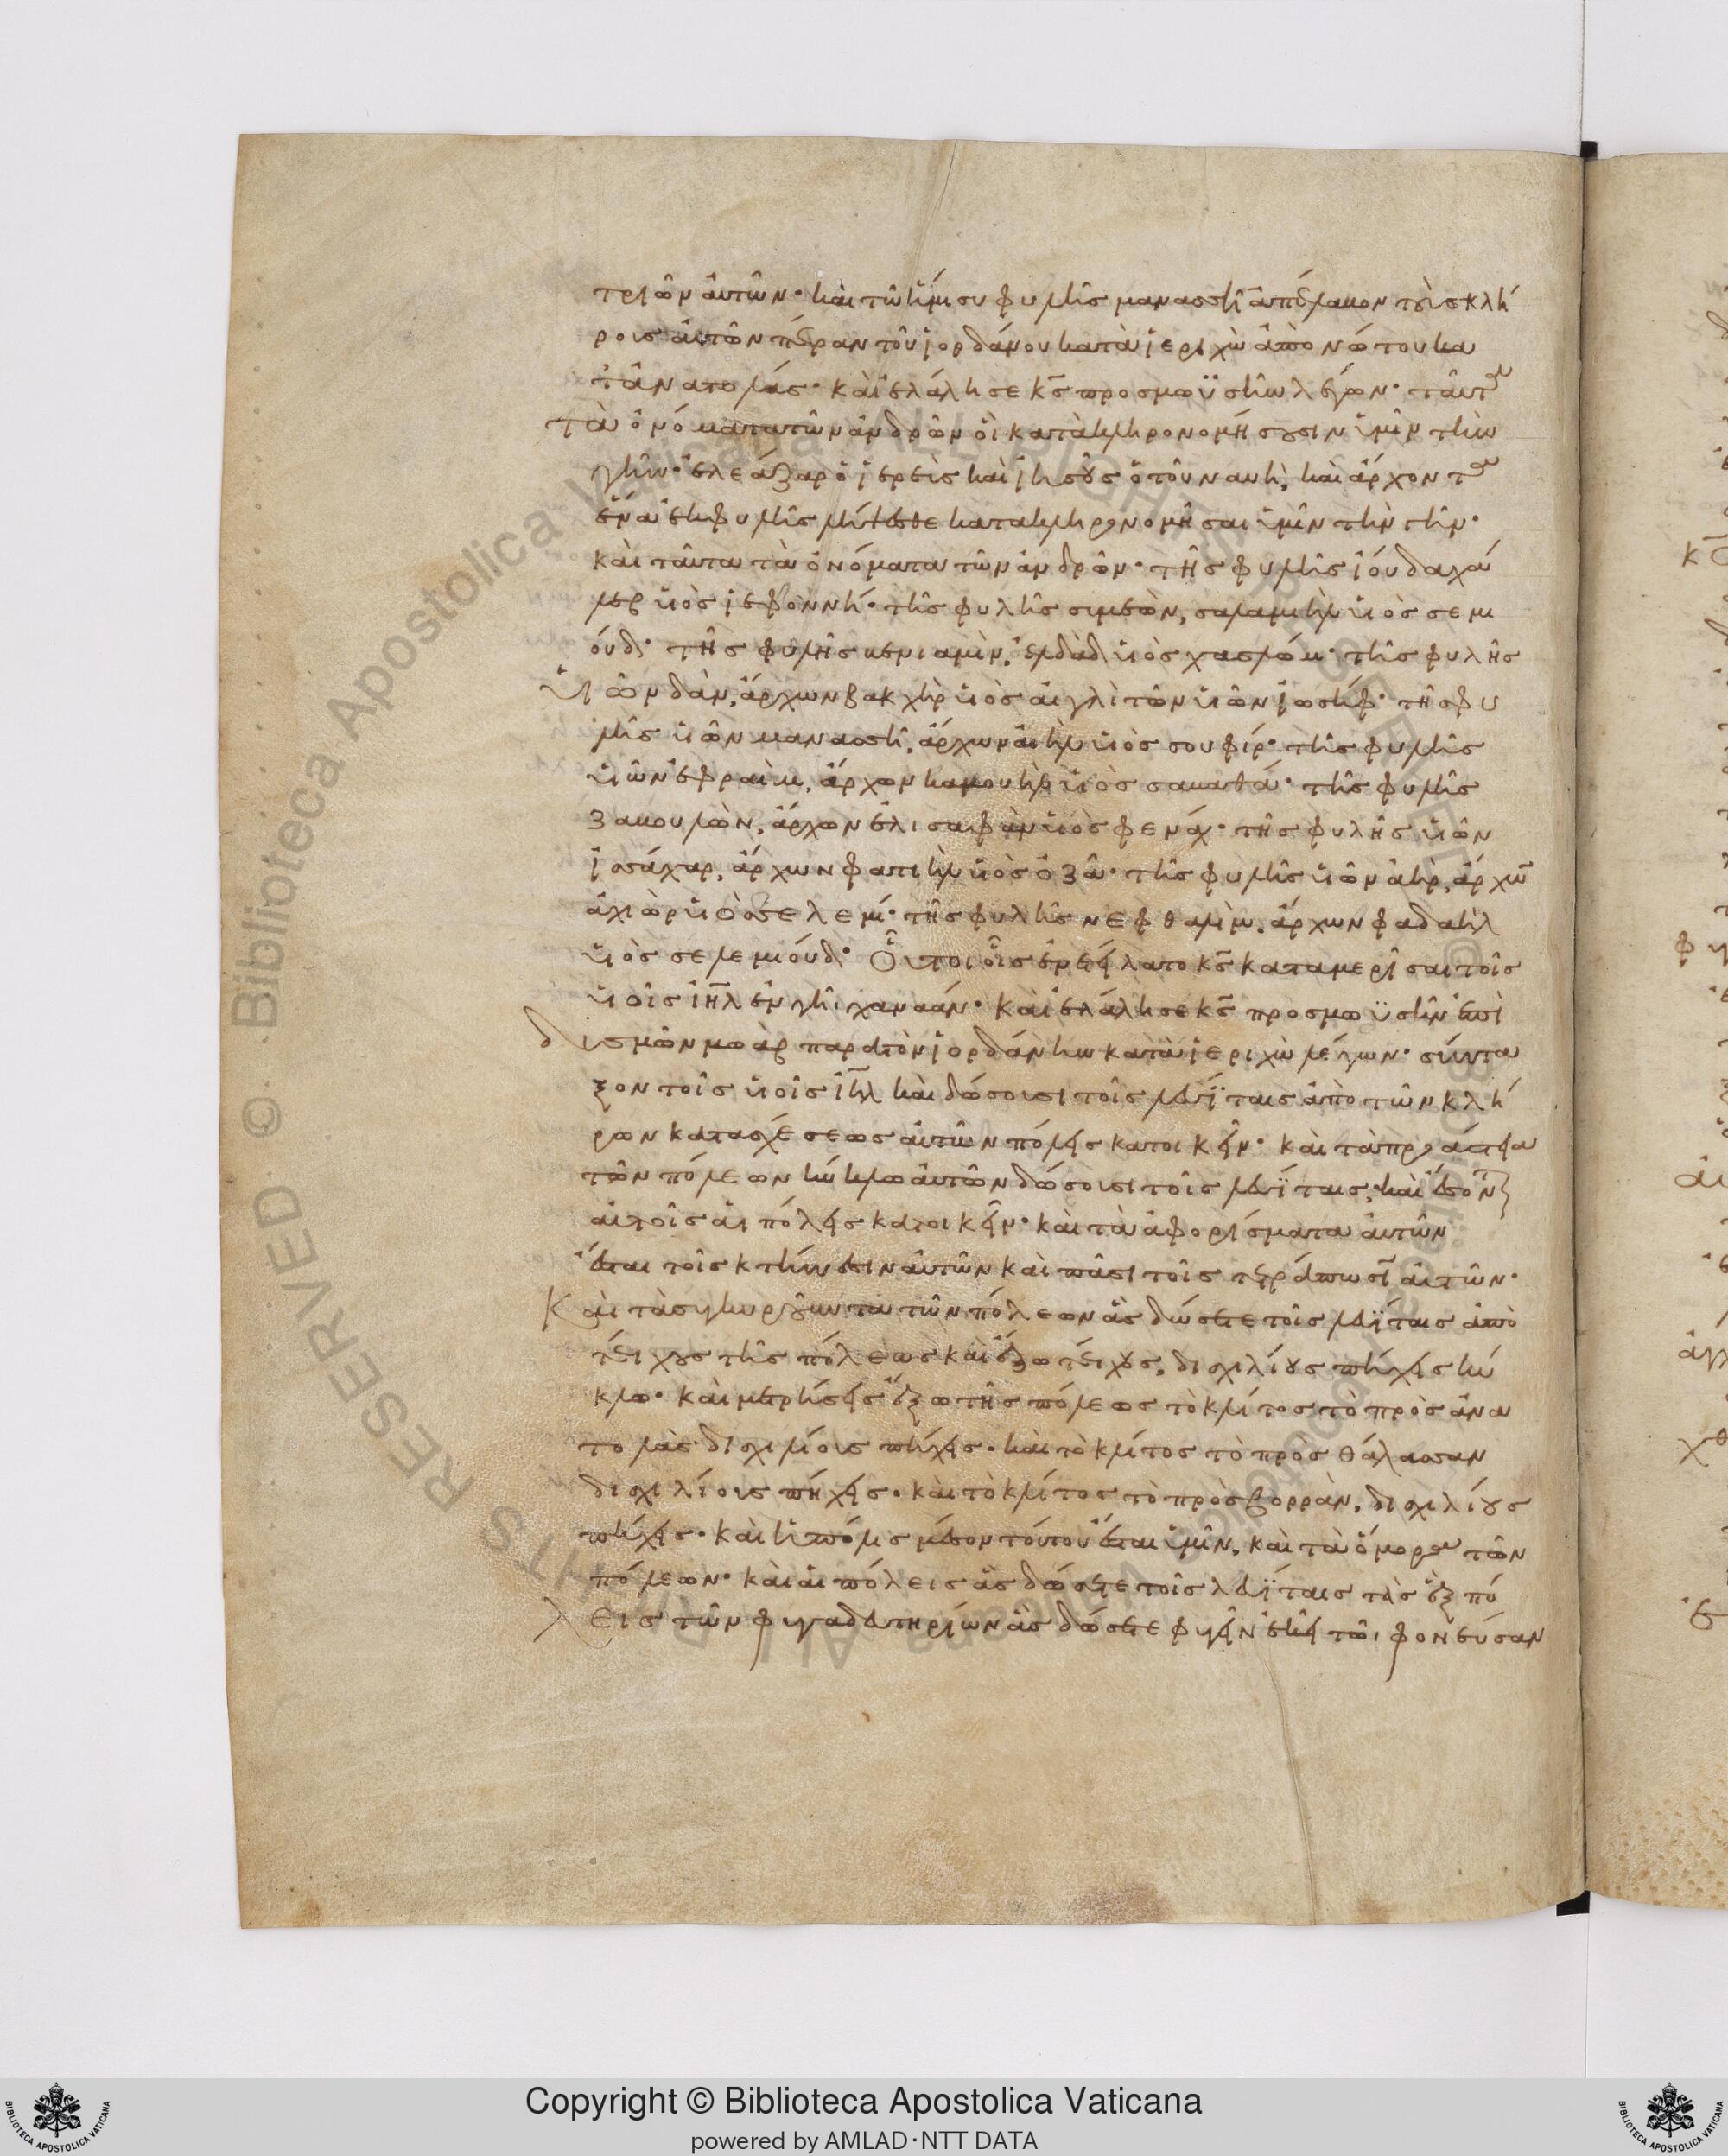 τριῶν αὐτῶν· καὶ τῶ ἡμίσυ φυλῆς μανασσῆ ἀπέλαβον τοὺς κλή
ρους αὐτῶν πέραν τοῦ ἰορδάνου κατὰ ἰεριχὼ ἀπὸ νότου κα
τ' ἀνατολάς· καὶ ἐλάλησε κ̅ς̅ προς μωϋσῆν λέγων· ταῦτα
τὰ ὀνόματα τῶν ἀνδρῶν οἳ κατακληρονομήσουσιν ὑμῖν τὴν
γῆν· ἐλεάζαρ ὁ ἱερεὺς καὶ ἰησοῦς ὁ τοῦ ναυή, καὶ ἄρχοντα
ἕνα ἐκ φυλῆς λήψεσθε κατακληρονομῆσαι ὑμῖν τὴν γῆν·
καὶ ταῦτα τὰ ὀνόματα τῶν ἀνδρῶν· τῆς φυλῆς ἰούδα χά
λεβ υἱὸς ἰεφοννή· τῆς φυλῆς συμεὼν, σαλαμιὴλ υἱὸς σεμι
ούδ· τῆς φυλῆς βενιαμὶν, ἐλδὰδ υἱὸς χασλών· τῆς φυλῆς
υἱῶν δὰν, ἄρχων βακχὴρ υἱὸς αἰγλὶ τῶν υἱῶν ἰωσήφ· τῆς φυ
λῆς υἱῶν μανασσῆ, ἄρχων ἀιὴλ υἱὸς σουφίρ· τῆς φυλῆς
υἱῶν ἐφραὶμ, ἄρχων καμουὴλ υἱὸς σαβαθά· τῆς φυλῆς
ζαβουλὼν, ἄρχων ἐλισαφὰν υἱὸς φενάχ· τῆς φυλῆς υἱῶν
ἰσσάχαρ, ἄρχων φατιὴλ υἱὸς ὀζᾶ· τῆς φυλῆς υἱῶν ἀσὴρ, ἄρχων
ἀχιὼρ υἱὸς σελεμί· τῆς φυλῆς νεφθαλὶμ, ἄρχων φαδαὴλ
υἱὸς σεμιούδ· Οὗτοι οἷς ἐνετείλατο κ̅ς̅ καταμερίσαι τοῖς
υἱοῖς ἰ̅η̅λ ἐν γῆ χαναάν· καὶ ἐλάλησε κ̅ς̅ προς μωϋσῆν ἐπὶ
δυσμῶν μωὰβ παρὰ τὸν ἰορδάνην κατὰ ἰεριχὼ λέγων· σύντα
ξον τοῖς υἱοῖς ἰ̅η̅λ καὶ δώσουσι τοῖς λευΐταις ἀπὸ τῶν κλή
ρων κατασχέσεως αὐτῶν πόλεις κατοικεῖν· καὶ τὰ προάστεια
τῶν πόλεων κύκλω αὐτῶν δώσουσι τοῖς λευΐταις, καὶ ἔσονται
αὐτοῖς αἱ πόλεις κατοικεῖν· καὶ τὰ ἀφορίσματα αὐτῶν
ἔσται τοῖς κτήνεσιν αὐτῶν καὶ πᾶσι τοῖς τετράποσι αὐτῶν·
Καὶ τὰ συγκυροῦντα τῶν πόλεων ἃς δώσετε τοῖς λευΐταις ἀπὸ
τείχους τῆς πόλεως καὶ ἔξω τείχους, δισχιλίους πήχεις κύ
κλω· καὶ μετρήσεις ἔξω τῆς πόλεως τὸ κλίτος τὸ πρὸς ἀνα
τολὰς δισχιλίους πήχεις· καὶ τὸ κλίτος τὸ πρὸς θάλασσαν
δισχιλίους πήχεις· καὶ τὸ κλίτος τὸ πρὸς βορρὰν, δισχιλίους
πήχεις· καὶ ἡ πόλις μέσον τούτου ἔσται ὑμῖν, καὶ τὰ ὅμορα τῶν
πόλεων· καὶ αἱ πόλεις ἃς δώσετε τοῖς λευΐταις τὰς ἓξ πό
λεις τῶν φυγαδευτηρίων ἃς δώσετε φυγεῖν ἐκεῖ τῶι φονεύσαν
Copyright © Biblioteca Apostolica Vaticana
powered by AMLAD·NTT DATA